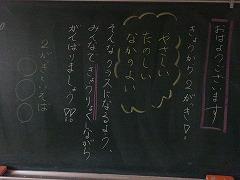 おはようございます
きょうから2がっき!
やさしい
たのしい
なかのよい
そんなクラスになるよう、
みんなできょうりょくしながら
がんばりましょう!!
2がっきといえば